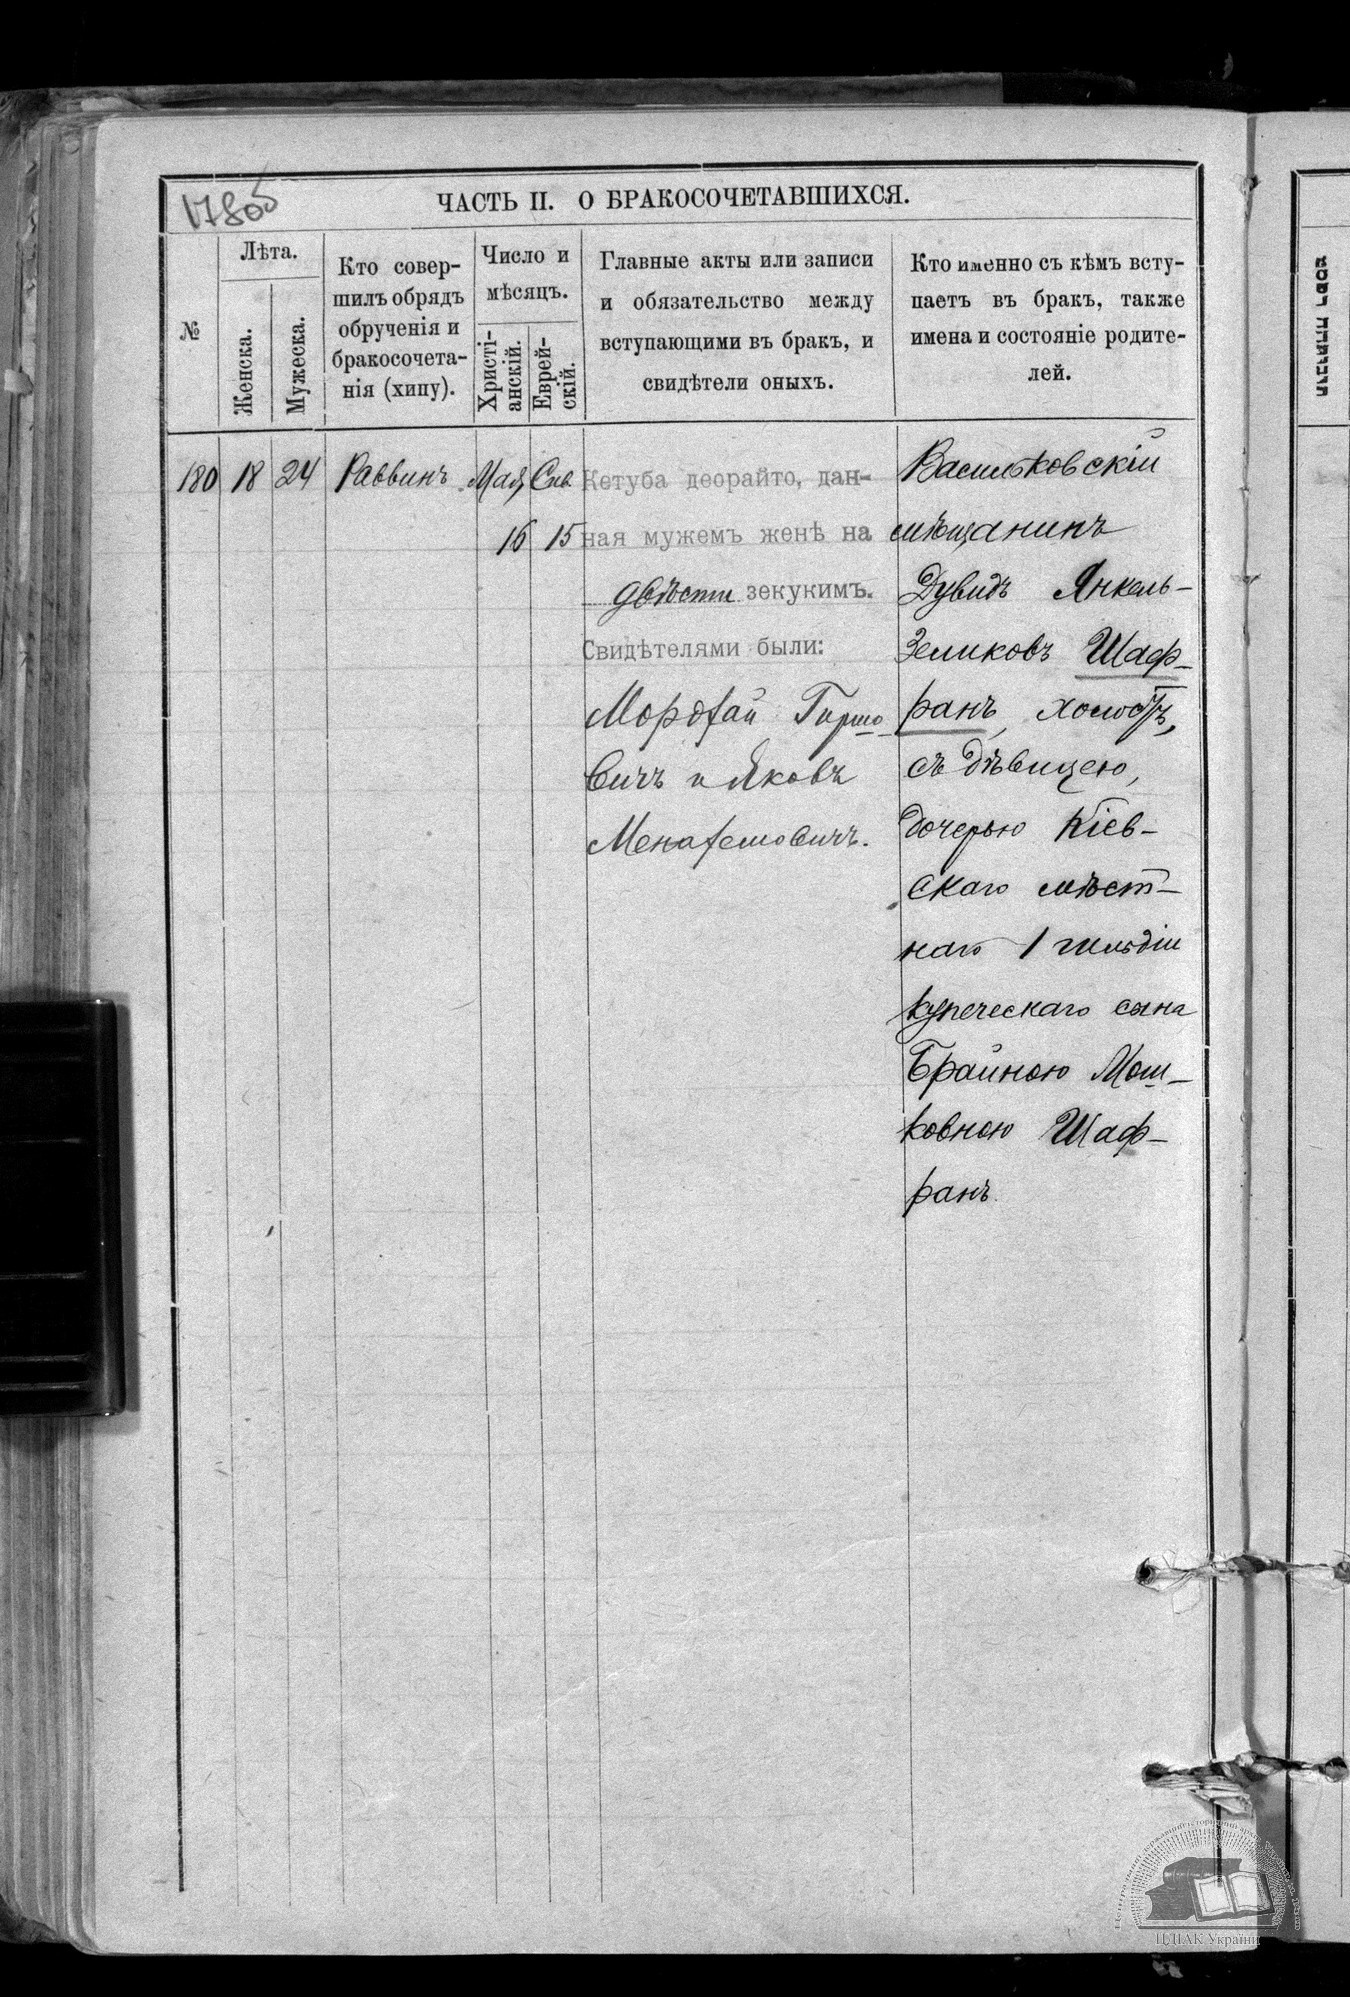 178об
ЧАСТЬ II. О БРАКОСОЧЕТАВШИХСЯ.
№
Лѣта.
Женска.
Мужеска.
Кто совер-
шилъ обрядъ
обрученія и
бракосочета-
нія (хипу).
Число и
мѣсяцъ.
Христі-
анскій.
Еврей-
скій.
Главные акты или записи
и обязательство между
вступающими въ бракъ, и
свидѣтели оныхъ.
Кто именно съ кѣмъ всту-
паетъ въ бракъ, также
имена и состояніе родите-
лей.
180 18 24 Раввинъ Мая Сив.
16 15
Кетуба деорайто, дан-
ная мужемъ женѣ на
двѣсти зекукимъ.
Свидѣтелями были:
Мордхай Гиршо
вичъ и Яковъ
Менахемовичъ.
Васильковскій
мѣщанинъ
Дувидъ Янкель-
Зеликовъ Шаф-
ранъ, холостъ,
съ дѣвицею,
дочерью Кіев-
скаго мѣст-
наго 1 гильдіи
купеческаго сына
Брайною Мош-
ковною Шаф-
ранъ.
ЦДІАК України